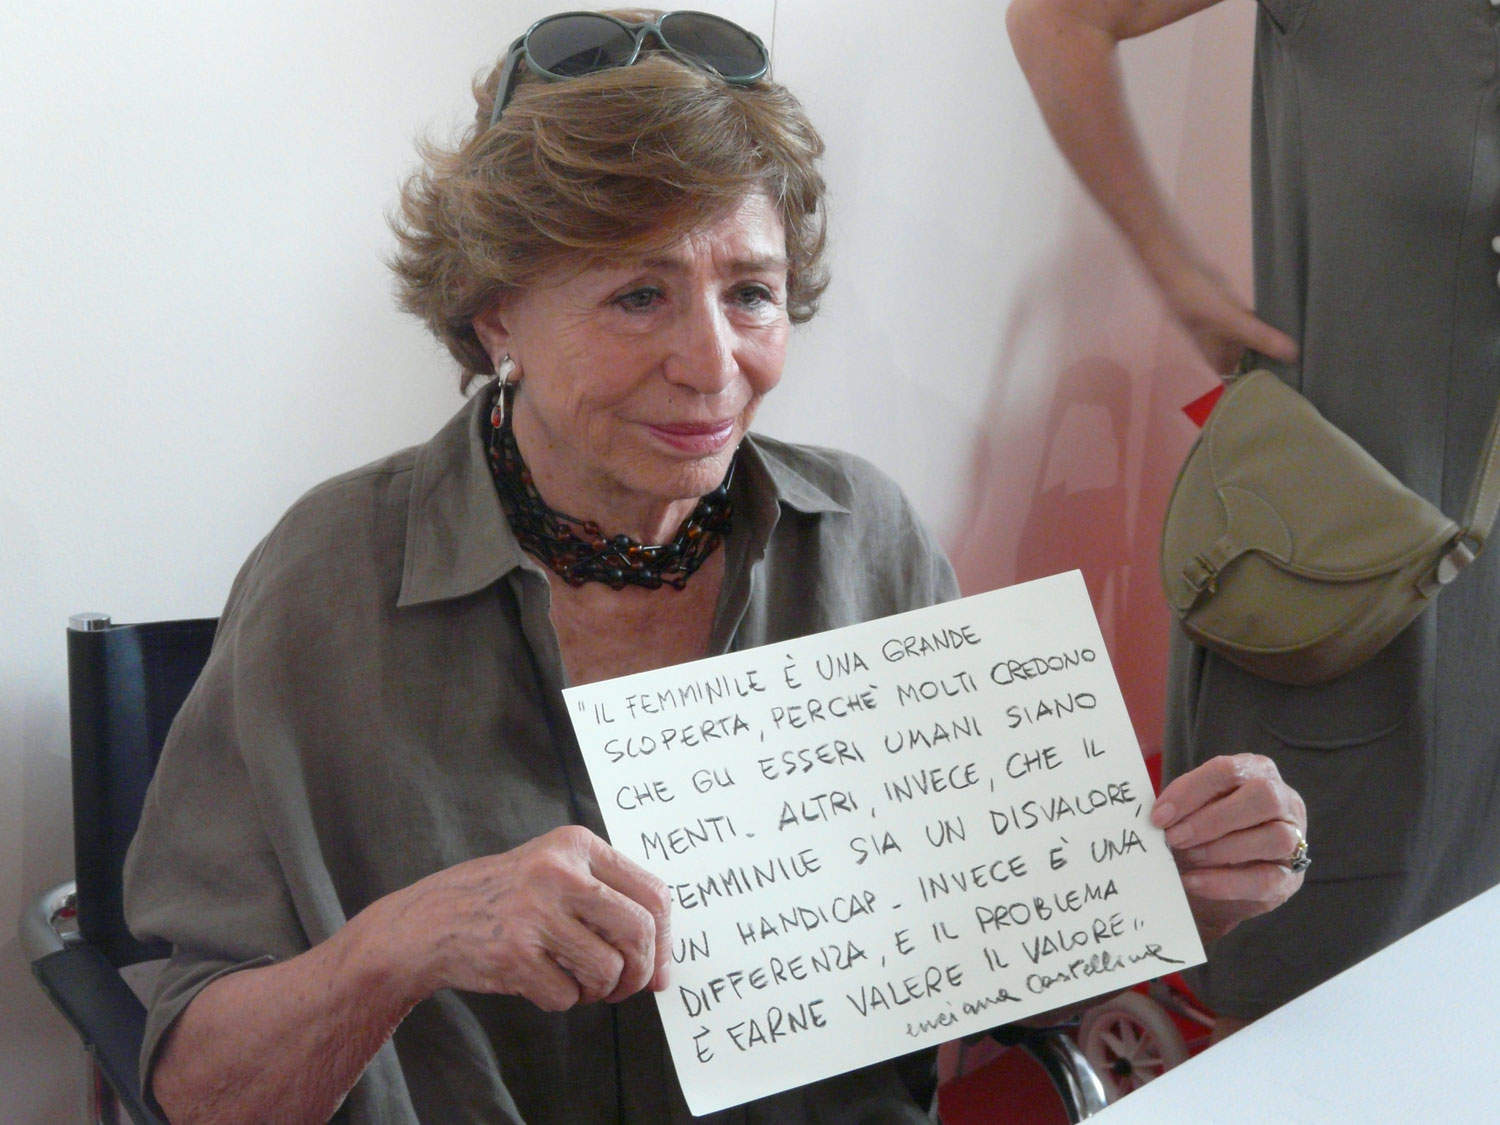 "IL FEMMINILE È UNA GRANDE
SCOPERTA, PERCHÈ MOLTI CREDONO
CHE GLI ESSERI UMANI SIANO
MENTI. ALTRI, INVECE, CHE IL
FEMMINILE SIA UN DISVALORE,
UN HANDICAP. INVECE È UNA
DIFFERENZA, E IL PROBLEMA
È FARNE VALERE IL VALORE"
Luciana Castellina